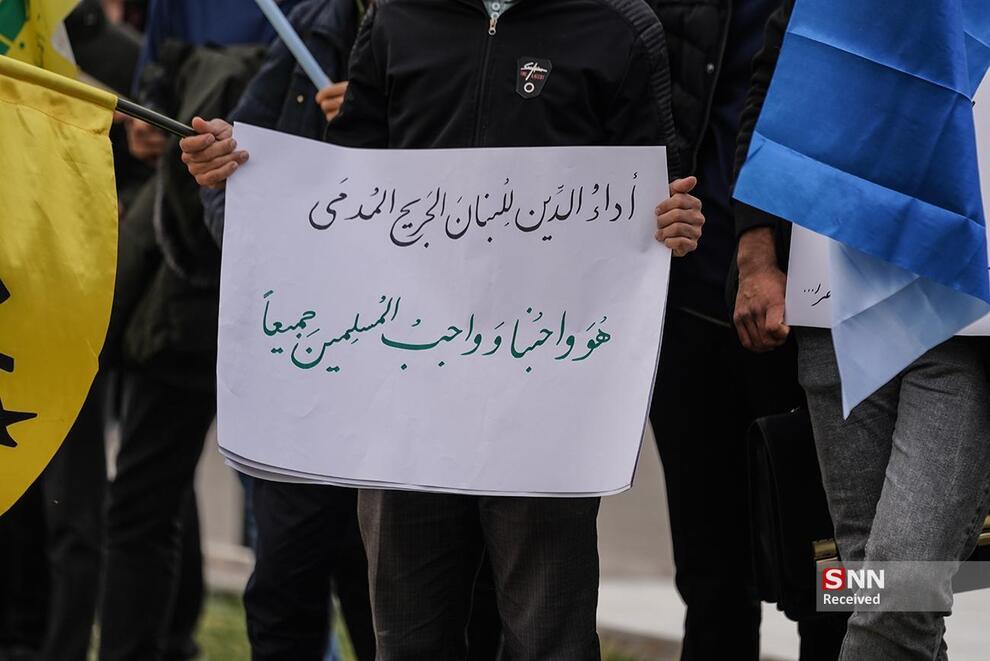 أداءُ الدَّين للُبنانَ الجَريحِ المُدمَى
هُوَ واجبُنا وَ واجبُ المُسلِمينَ جَميعاً
SNN
Received